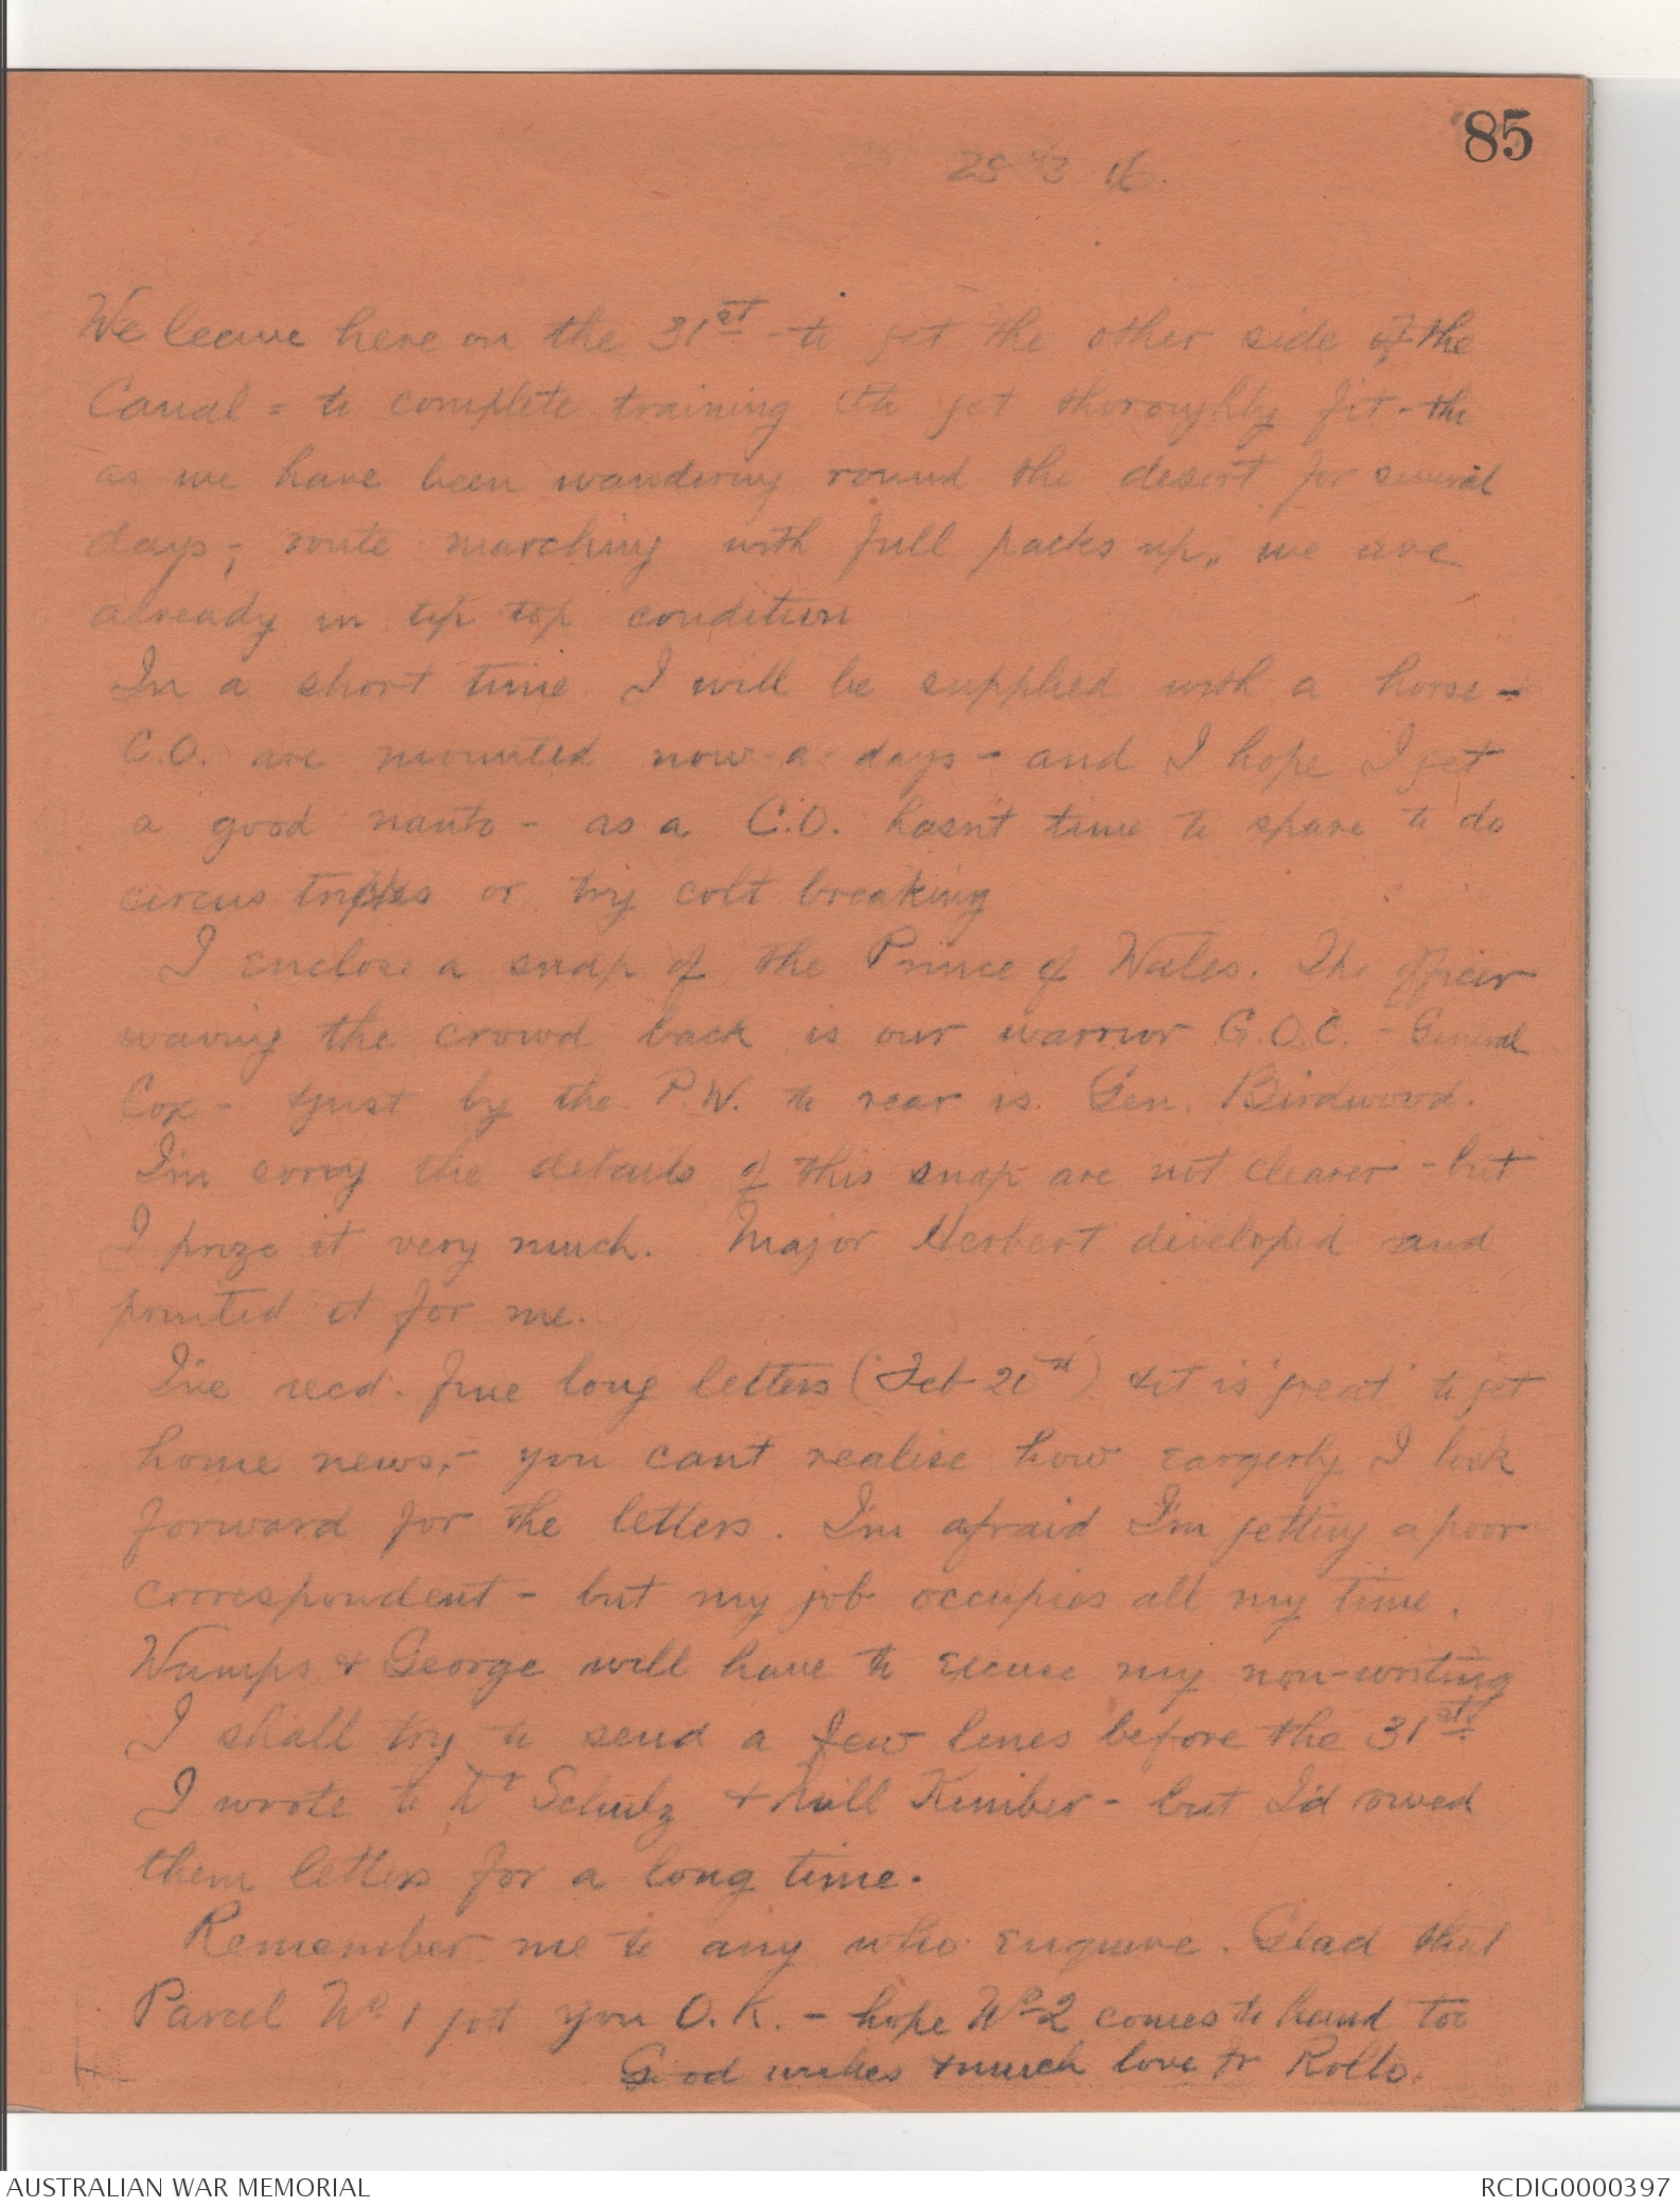 85
28/3/16.
We leave here on the 31st - to get the other side of the
Canal = to complete training & to get thoroughly fit - tho
as we have been wandering round the desert for several
days, route marching with full packs up, we are
already in tip top condition
In a short time I will be supplied with a horse -
C.O. are mounted now-a-days - and I hope I get
a good nanto - as a C.O. hasn't time to spare to do
circus tricks or try colt breaking
I enclose a snap of the Prince of Wales. The officer
waving the crowd back is our warrior G.O.C. - General
Cox - & just by the P.W. to rear is Gen. Birdwood.
I'm sorry the details of this snap are not clearer - but
I prize it very much. Major Herbert developed and
printed it for me.
I've recd. fine long letters (Feb 21st) & it is 'great' to get
home news, - you cant realise how eargerly I look
forward for the letters. I'm afraid I'm getting a poor
correspondent - but my job occupies all my time.
Wamps & George will have to excuse my non-writing
I shall try to send a few lines before the 31st
I wrote to Dr Schulz & Kimber - but I'd owed
them letters for a long time.
Remember me to any who enquire. Glad that
Parcel No. 1 got you O.K. - hope No 2 comes to hand too
Good wishes & much love fr Rollo.
AUSTRALIAN WAR MEMORIAL
RCDIG0000397